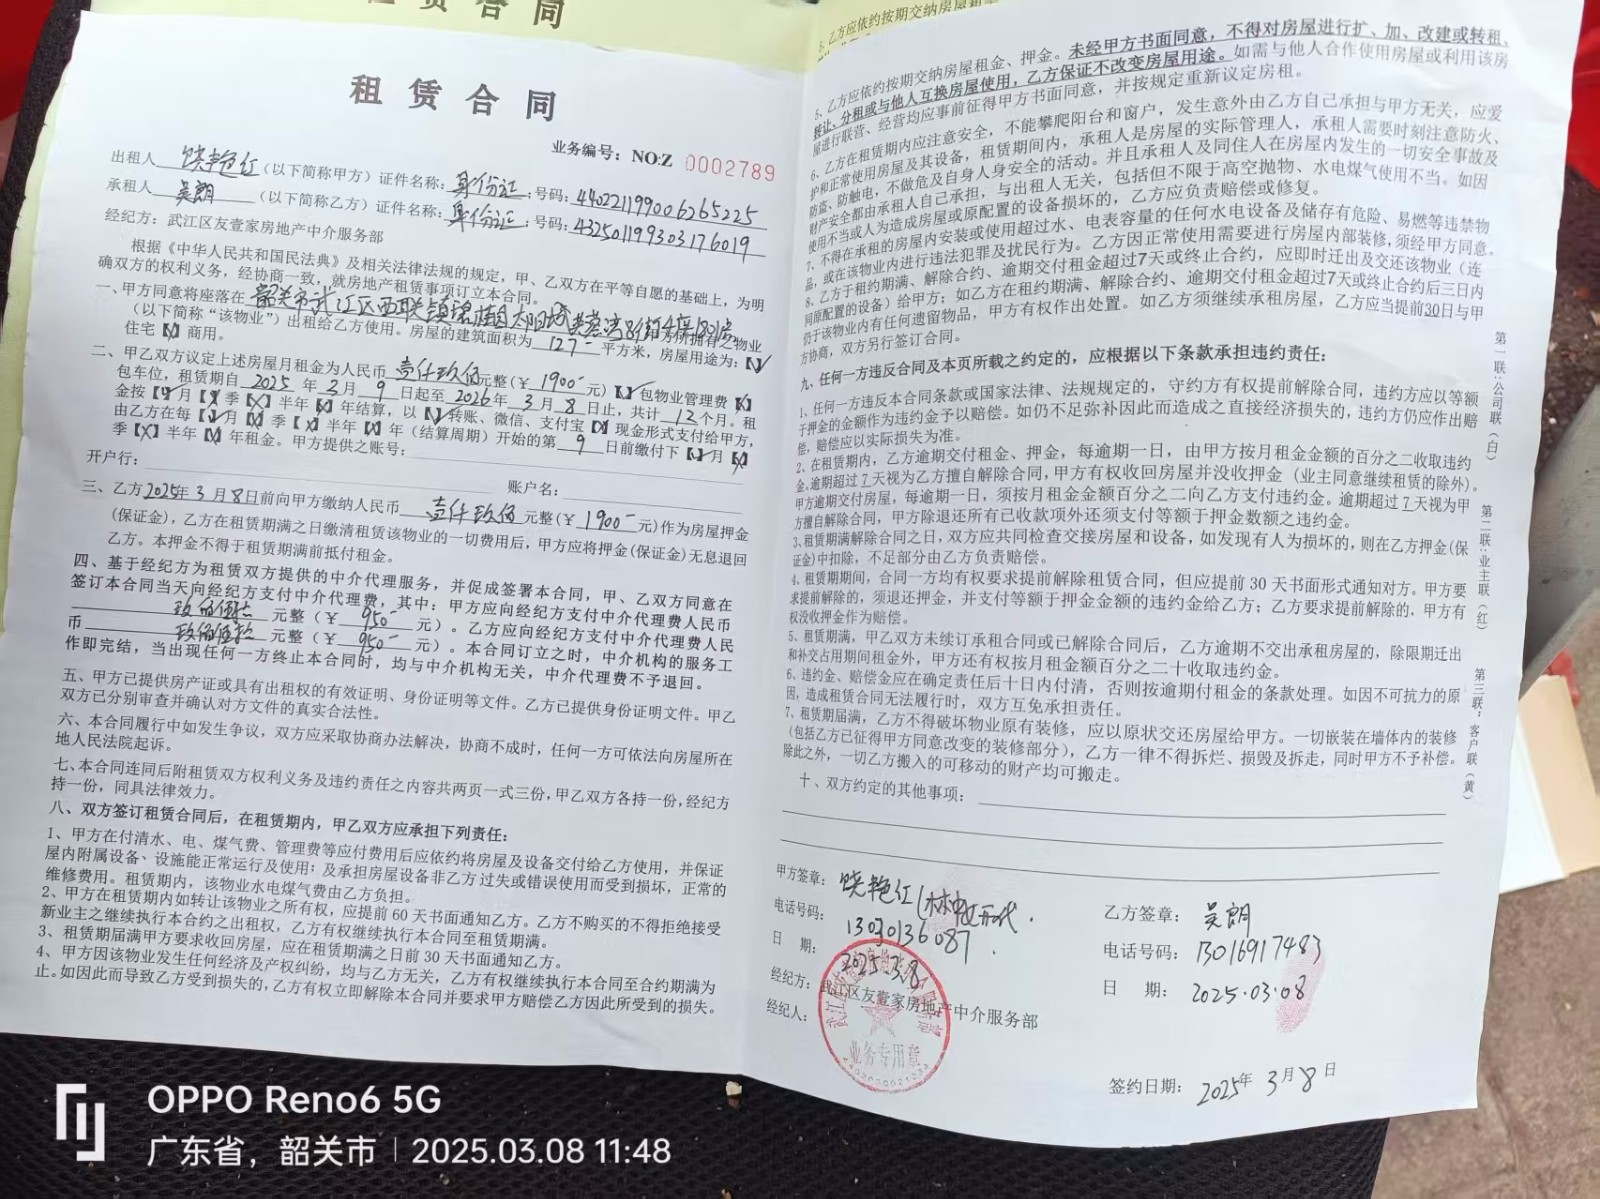 租赁合同
租赁合同
业务编号：NO:Z 0002789
出租人 饶艳红 (以下简称甲方) 证件名称：身份证；号码：440221199006265225
承租人 吴朗 (以下简称乙方) 证件名称：身份证；号码：432501199303176019
经纪方：武江区友壹家房地产中介服务部
根据《中华人民共和国民法典》及相关法律法规的规定，甲、乙双方在平等自愿的基础上，为明
确双方的权利义务，经协商一致，就房地产租赁事项订立本合同。
一、甲方同意将座落在 韶关市武江区西联镇 芙蓉湾8街4栋1801房 方所拥有之物业
(以下简称“该物业”) 出租给乙方使用。房屋的建筑面积为 127 平方米，房屋用途为：【✓】
住宅【】商用。
二、甲乙双方议定上述房屋月租金为人民币 壹仟玖佰 元整 (￥ 1900- 元)【✓】包物业管理费【X】
包车位，租赁期自 2025 年 3 月 9 日起至 2026 年 3 月 8 日止，共计 12 个月。租
金按【✓】月【X】季【X】半年【X】年结算，以【✓】转账、微信、支付宝【X】现金形式支付给甲方，
由乙方在每【✓】月【X】季【X】半年【X】年 (结算周期) 开始的第 9 日前缴付下【✓】月【X】
季【X】半年【X】年租金。甲方提供之账号：
开户行： 账户名：
三、乙方 2025年3月8 日前向甲方缴纳人民币 壹仟玖佰 元整 (￥ 1900- 元) 作为房屋押金
(保证金)，乙方在租赁期满之日缴清租赁该物业的一切费用后，甲方应将押金(保证金)无息退回
乙方。本押金不得于租赁期满前抵付租金。
四、基于经纪方为租赁双方提供的中介代理服务，并促成签署本合同，甲、乙双方同意在
签订本合同当天向经纪方支付中介代理费，其中：甲方应向经纪方支付中介代理费人民币
玖佰伍拾 元整 (￥ 950- 元)。乙方应向经纪方支付中介代理费人民
币 玖佰伍拾 元整 (￥ 950- 元)。本合同订立之时，中介机构的服务工
作即完结，当出现任何一方终止本合同时，均与中介机构无关，中介代理费不予退回。
五、甲方已提供房产证或具有出租权的有效证明、身份证明等文件。乙方已提供身份证明文件。甲乙
双方已分别审查并确认对方文件的真实合法性。
六、本合同履行中如发生争议，双方应采取协商办法解决，协商不成时，任何一方可依法向房屋所在
地人民法院起诉。
七、本合同连同后附租赁双方权利义务及违约责任之内容共两页一式三份，甲乙双方各持一份，经纪方
持一份，同具法律效力。
八、双方签订租赁合同后，在租赁期内，甲乙双方应承担下列责任：
1、甲方在付清水、电、煤气费、管理费等应付费用后应依约将房屋及设备交付给乙方使用，并保证
屋内附属设备、设施能正常运行及使用；及承担房屋设备非乙方过失或错误使用而受到损坏，正常的
维修费用。租赁期内，该物业水电煤气费由乙方负担。
2、甲方在租赁期内如转让该物业之所有权，应提前 60 天书面通知乙方。乙方不购买的不得拒绝接受
新业主之继续执行本合约之出租权，乙方有权继续执行本合同至租赁期满。
3、租赁期届满甲方要求收回房屋，应在租赁期满之日前 30 天书面通知乙方。
4、甲方因该物业发生任何经济及产权纠纷，均与乙方无关，乙方有权继续执行本合同至合约期满为
止。如因此而导致乙方受到损失的，乙方有权立即解除本合同并要求甲方赔偿乙方因此所受到的损失。
5、乙方应依约按期交纳房屋租金
5、乙方应依约按期交纳房屋租金、押金。未经甲方书面同意，不得对房屋进行扩、加、改建或转租、
转让、分租或与他人互换房屋使用，乙方保证不改变房屋用途。如需与他人合作使用房屋或利用该房
屋进行联营、经营均应事前征得甲方书面同意，并按规定重新议定房租。
6、乙方在租赁期内应注意安全，不能攀爬阳台和窗户，发生意外由乙方自己承担与甲方无关，应爱
护和正常使用房屋及其设备，租赁期间内，承租人是房屋的实际管理人，承租人需要时刻注意防火、
防盗、防触电，不做危及自身人身安全的活动。并且承租人及同住人在房屋内发生的一切安全事故及
财产安全都由承租人自己承担，与出租人无关，包括但不限于高空抛物、水电煤气使用不当。如因
使用不当或人为造成房屋或原配置的设备损坏的，乙方应负责赔偿或修复。
7、不得在承租的房屋内安装或使用超过水、电表容量的任何水电设备及储存有危险、易燃等违禁物
品，或在该物业内进行违法犯罪及扰民行为。乙方因正常使用需要进行房屋内部装修，须经甲方同意。
8、乙方于租约期满、解除合约、逾期交付租金超过7天或终止合约，应即时迁出及交还该物业 (连
同原配置的设备) 给甲方；如乙方在租约期满、解除合约、逾期交付租金超过7天或终止合约后三日内
仍于该物业内有任何遗留物品，甲方有权作出处置。如乙方须继续承租房屋，乙方应当提前30日与甲
方协商，双方另行签订合同。
九、任何一方违反合同及本页所载之约定的，应根据以下条款承担违约责任：
1、任何一方违反本合同条款或国家法律、法规规定的，守约方有权提前解除合同，违约方应以等额
于押金的金额作为违约金予以赔偿。如仍不足弥补因此而造成之直接经济损失的，违约方仍应作出赔
偿，赔偿应以实际损失为准。
2、在租赁期内，乙方逾期交付租金、押金，每逾期一日，由甲方按月租金金额的百分之二收取违约
金。逾期超过 7 天视为乙方擅自解除合同，甲方有权收回房屋并没收押金 (业主同意继续租赁的除外)。
甲方逾期交付房屋，每逾期一日，须按月租金金额百分之二向乙方支付违约金。逾期超过 7 天视为甲
方擅自解除合同，甲方除退还所有已收款项外还须支付等额于押金数额之违约金。
3、租赁期满解除合同之日，双方应共同检查交接房屋和设备，如发现有人为损坏的，则在乙方押金(保
证金)中扣除，不足部分由乙方负责赔偿。
4、租赁期期间，合同一方均有权要求提前解除租赁合同，但应提前 30 天书面形式通知对方。甲方要
求提前解除的，须退还押金，并支付等额于押金金额的违约金给乙方；乙方要求提前解除的，甲方有
权没收押金作为赔偿。
5、租赁期满，甲乙双方未续订承租合同或已解除合同后，乙方逾期不交出承租房屋的，除限期迁出
和补交占用期间租金外，甲方还有权按月租金额百分之二十收取违约金。
6、违约金、赔偿金应在确定责任后十日内付清，否则按逾期付租金的条款处理。如因不可抗力的原
因，造成租赁合同无法履行时，双方互免承担责任。
7、租赁期届满，乙方不得破坏物业原有装修，应以原状交还房屋给甲方。一切嵌装在墙体内的装修
(包括乙方已征得甲方同意改变的装修部分)，乙方一律不得拆烂、损毁及拆走，同时甲方不予补偿。
除此之外，一切乙方搬入的可移动的财产均可搬走。
十、双方约定的其他事项：
第一联：公司联（白）
第二联：业主联（红）
第三联：客户联（黄）
甲方签章：饶艳红
电话号码：13030136087
日 期：2025.3.8
经纪方：武江区友壹家房地产中介服务部
经纪人：
业务专用章
乙方签章：吴朗
电话号码：13016917483
日 期：2025.03.08
签约日期：2025年3月8日
OPPO Reno6 5G
广东省，韶关市 | 2025.03.08 11:48